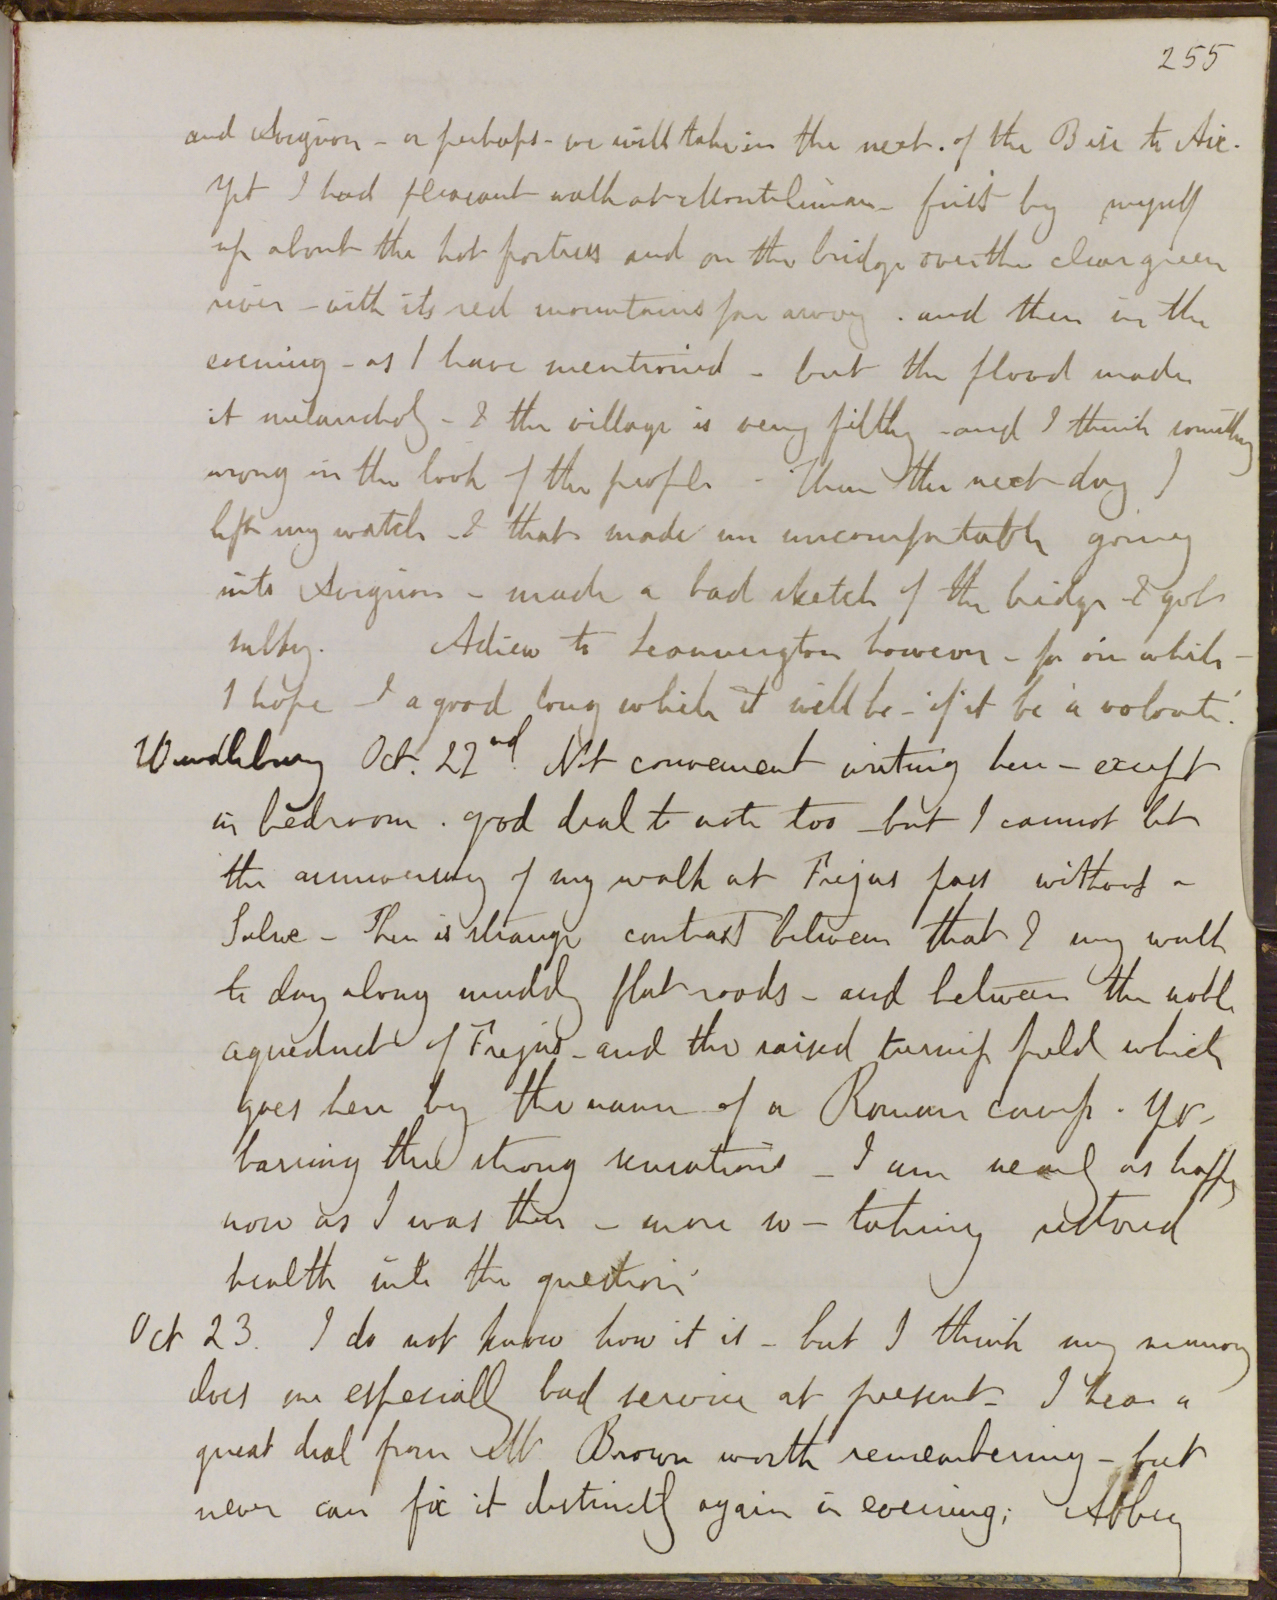 255
and Avignon - or perhaps - we will take in the next . of the Bise to Aix.
Yet I had pleasant walk at Montelimar - first by myself
up about the hot fortress and on the bridge over the clear green
river - with its red mountains far away . and then in the
evening - as I have mentioned - but the flood made
it melancholy - & the village is very filthy - and I think something
wrong in the look of the people - Then the next day I
left my watch - & that made me uncomfortable going
into Avignon - made a bad sketch of the bridge & got
sulky. Adieu to Leamington however - for one while -
I hope - & a good long while it will be - if it be à volonté.
Wendlebury Oct. 22nd. Not convenient writing here - except
in bedroom . good deal to note too - but I cannot let
the anniversary of my walk at Frejus pass without a
Salve - There is strange contrast between that & my walk
to day along muddy flat roads - and between the noble
aqueduct of Frejus - and the raised turnip field which
goes here by the name of a Roman camp . Yet
barring the strong sensations - I am nearly as happy
now as I was then - more so - taking restored
health into the question.
Oct 23. I do not know how it is - but I think my memory
does me especially bad service at present - I hear a
great deal from Mr Brown worth remembering - but
never can fix it distinctly again in evening; Abbey